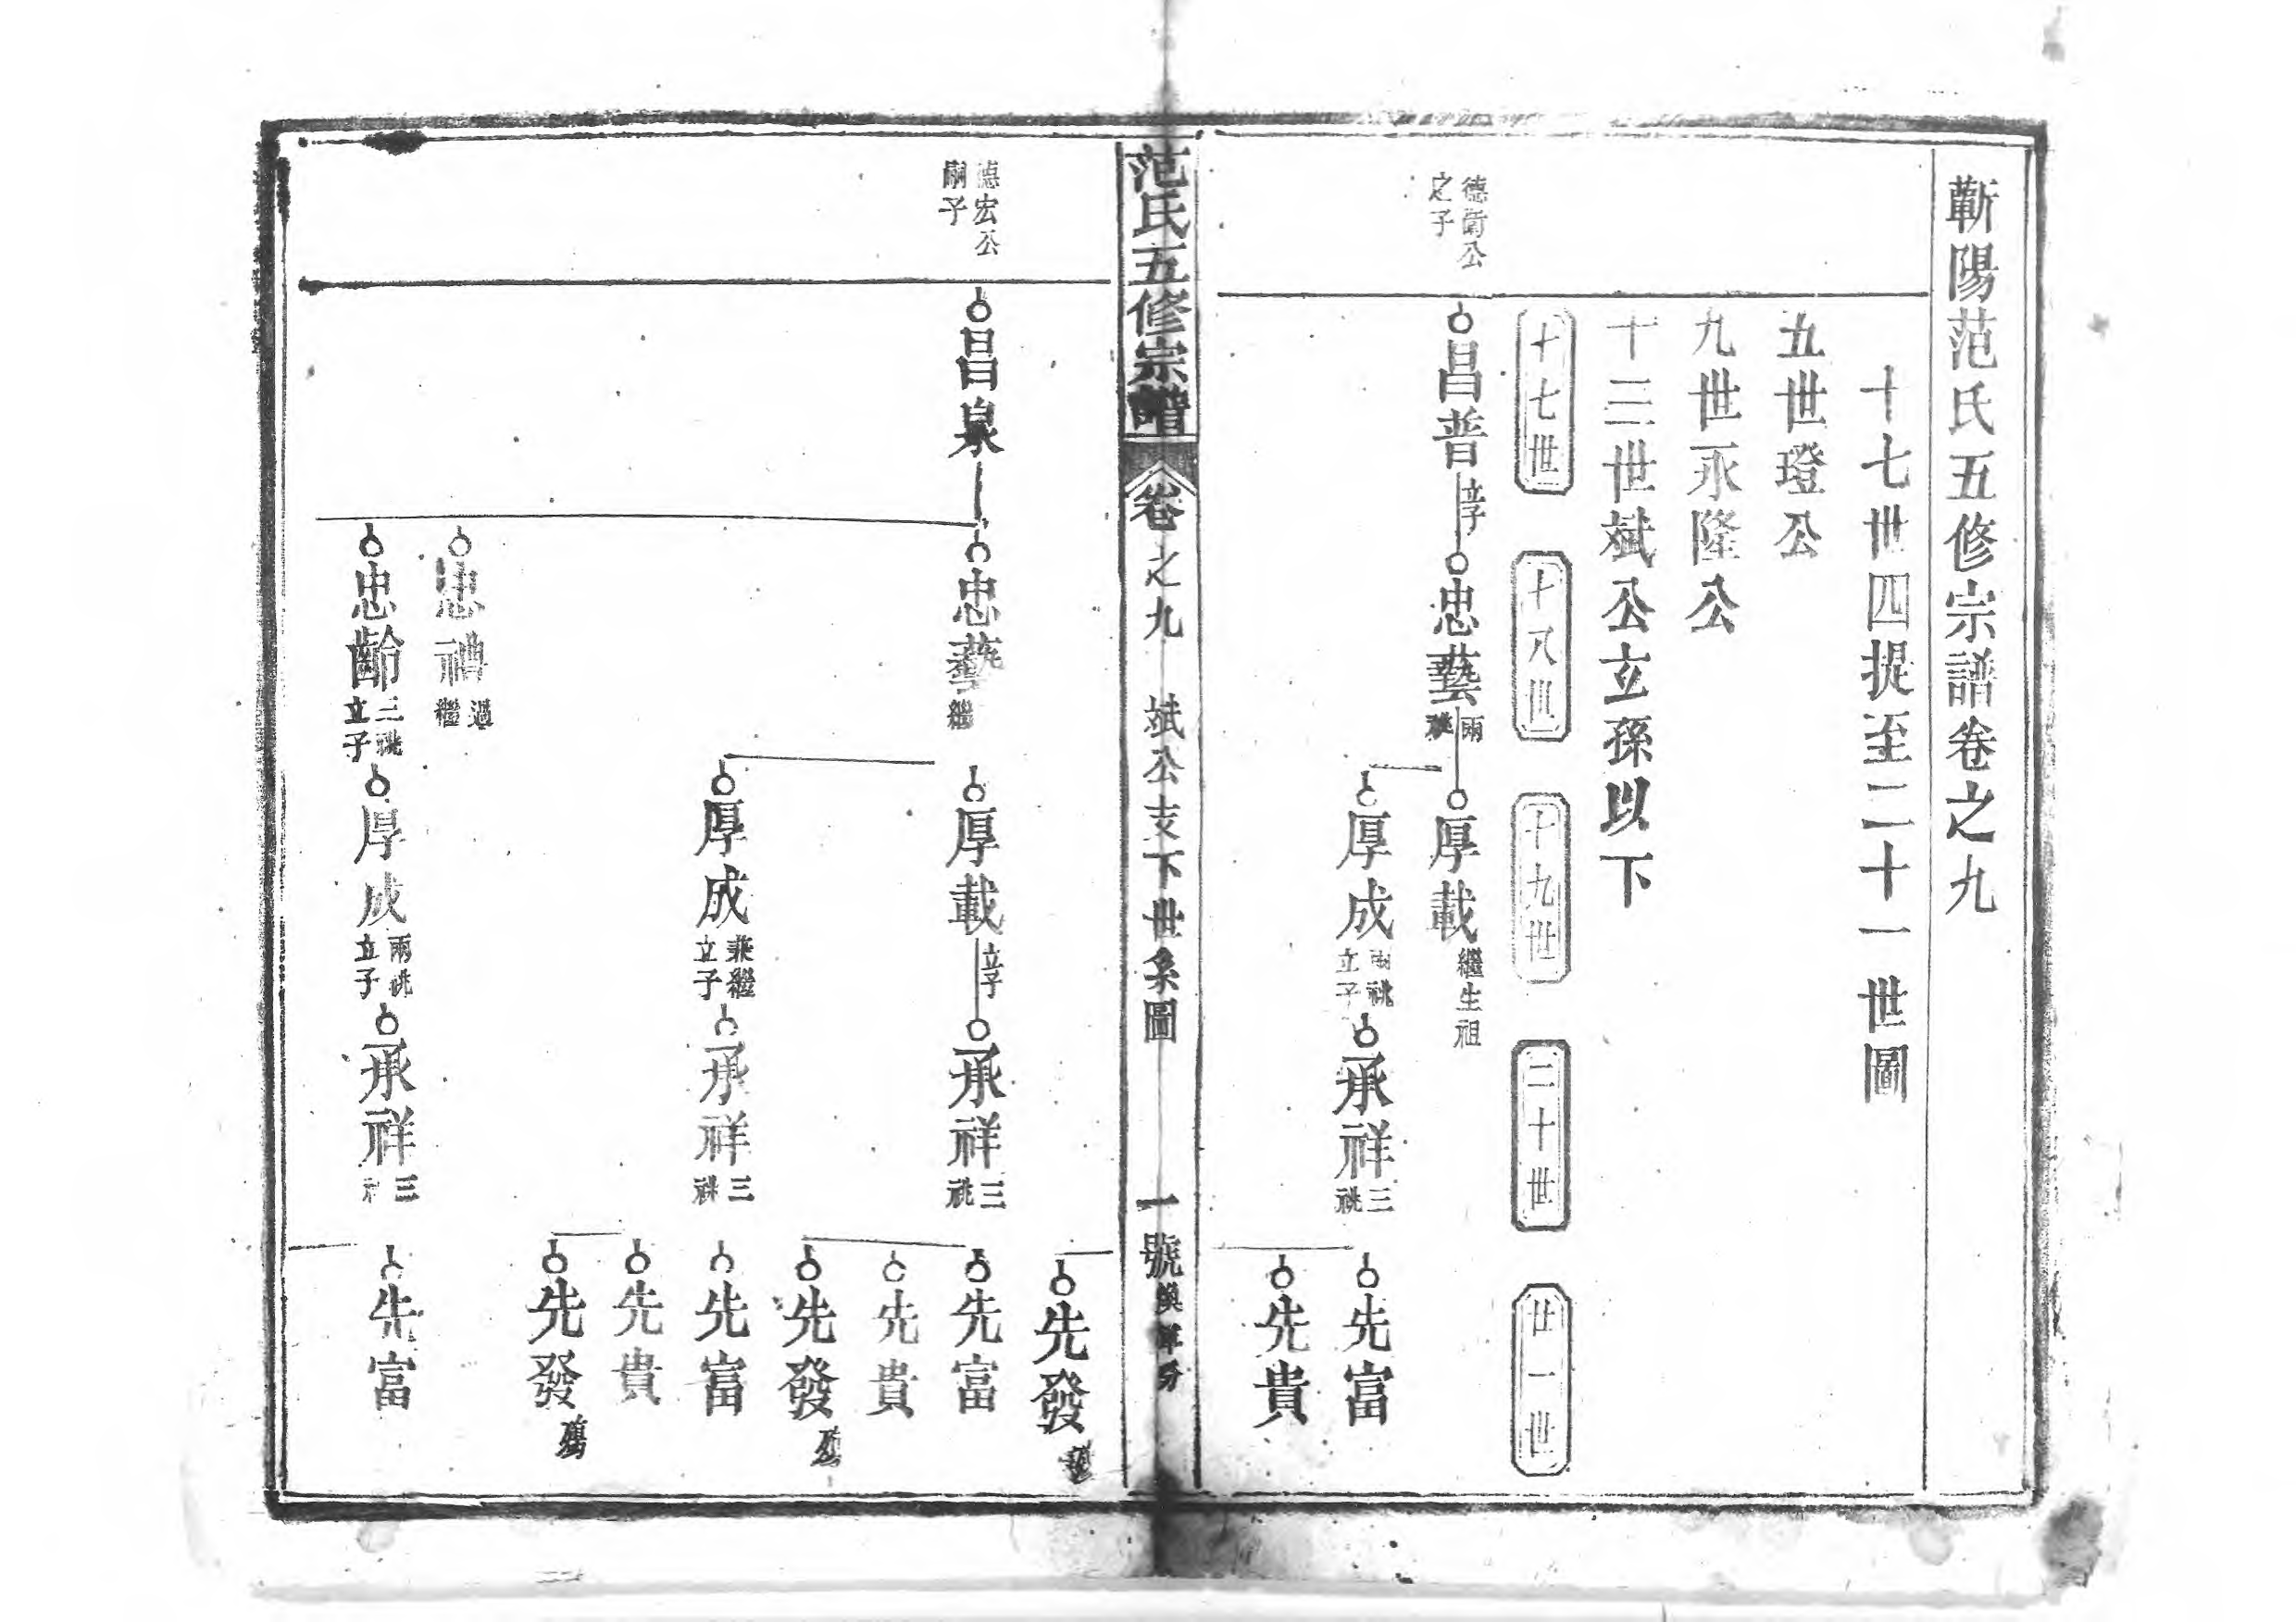 蘄陽范氏五修宗譜卷之九
十七世四提至二十一世圖
五世璒公
九世永隆公
十三世斌公立孫以下
十七世
十八世
十九世
二十世
廿一世
德衛公
之子
昌普立子
忠藝兩祧
厚載繼生祖
厚成兩祧立子
承祥三祧
先富
先貴
范氏五修宗譜
卷之九
斌公支下世系圖
一號
先發
德宏公
嗣子
昌泉
忠藝繼
厚載立子
承祥三祧
先富
先貴
先發
厚成兼繼立子
承祥三祧
先富
先貴
先發
忠禮過繼
忠齡三祧立子
厚成兩祧立子
承祥三
先富